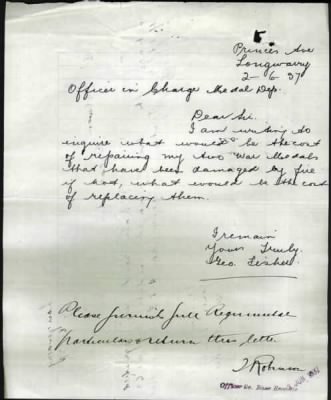 5
Princes Ave
Longwarry
2-6.37
Officer in Charge Medal Dep.
Dear Sir.
I am writing to
inquire what would be the cost
of repairing my two War Medals
that have been damaged by fire
if not, what would be the cost
of replacing them.
I remain
Yours Truly.
Geo.
Please furnish full Regimental
particulars & return this letter
Robinson
Officer i/c. Base Records
JUN 1937